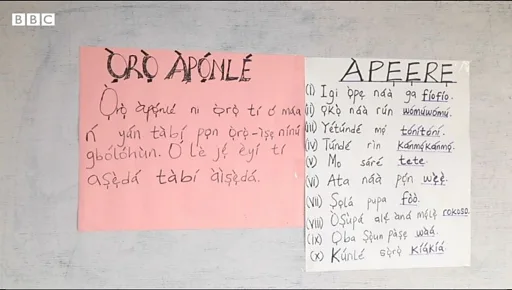 BBC
Ọ̀RỌ̀ ÀPỌ́NLÉ
Ọ̀rọ̀ àpọ́nlé ni ọ̀rọ̀ tí ó máa
ń yán tàbí pọn ọ̀rọ̀-ìṣe nínú
gbólóhùn. Ó lè jẹ́ èyí tí
aṣẹ̀dá tàbí àìṣẹ̀dá.
ÀPẸẸRẸ
(i) Igi ọ̀pẹ náà ga fíofío.
(ii) ọkọ̀ náà rún wómúwómú.
(iii) Yétúndé mọ́ tónítóní.
(iv) Túndé rìn kánmọ́kánmọ́.
(v) Mo sáré tete.
(vi) Ata náà pọ́n wẹ̀ẹ̀.
(vii) Ṣọlá pupa fòò.
(viii) Òṣùpá alẹ́ àná mọ́lẹ̀ rokoso.
(ix) Ọba Ṣẹ̀un pàṣẹ wàá.
(x) Kúnlé sọ̀rọ̀ kíákíá.